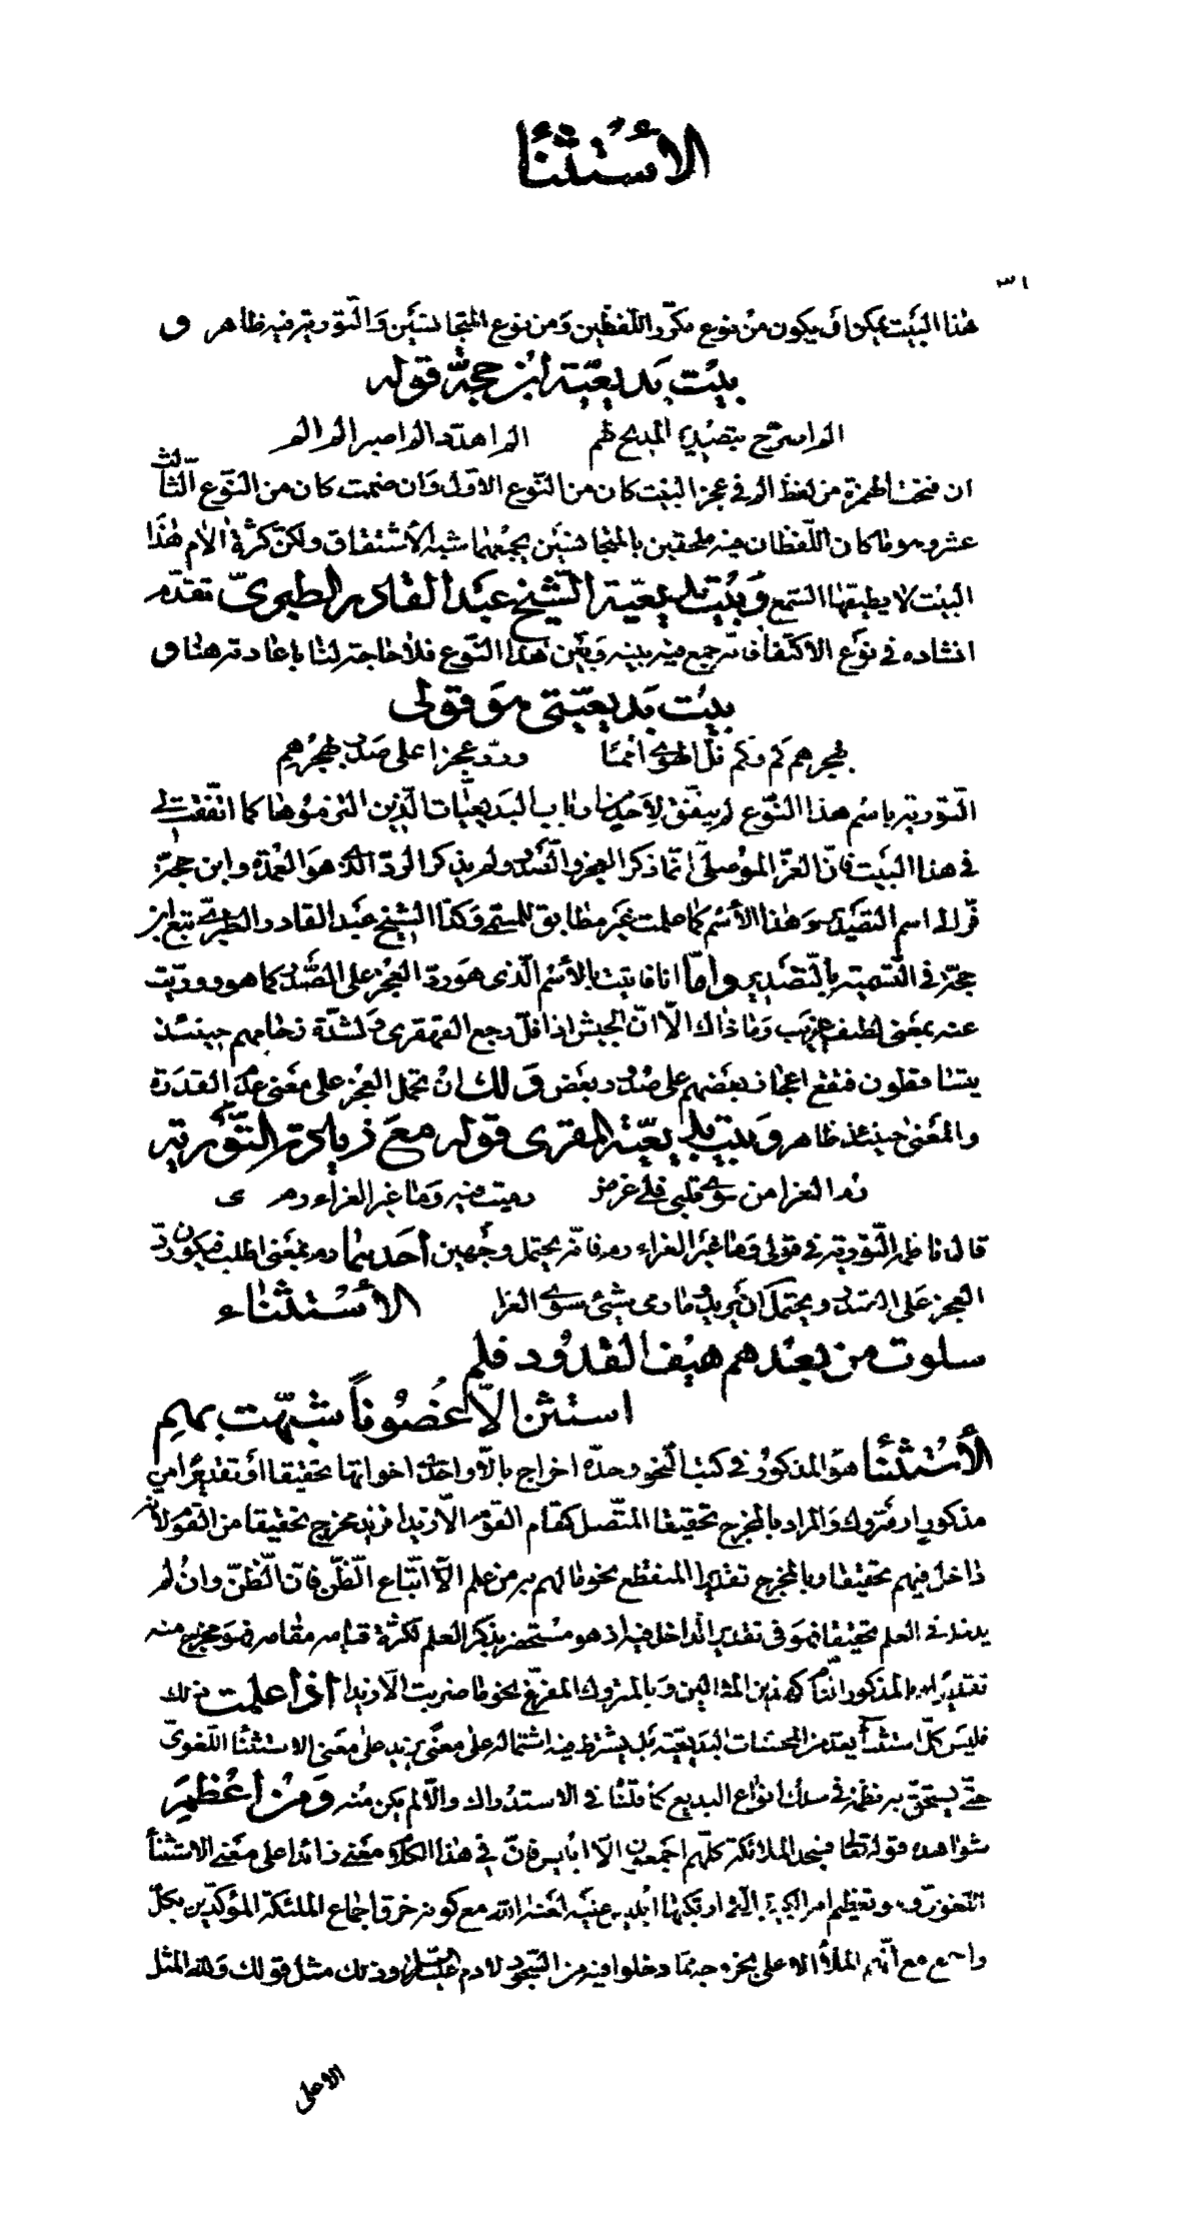 الاستثنا
٣١
هذا البيت يمكن ان يكون من نوع مكرر اللفظين ومن نوع المتجانسين والتورية فيه ظاهر و
بيت بديعية ابن حجة قوله
الم اصرح بتصدير المديح لهم الم اهدد الم اصبر الم الم
ان فتحت الهمزة من لفظ الم في عجز البيت كان من النوع الاول وان ضممت كان من النوع الثالث
عشر وهو ما كان اللفظان فيه ملحقين بالمتجانسين يجمعهما شبه الاشتقاق ولكن كثرة الام هذا
البيت لا يطيقها السمع وبيت بديعية الشيخ عبد القادر الطبري تقدم
انشاده في نوع الاكتفاء فانه جمع فيه بينه وبين هذا النوع فلا حاجة لنا باعادته هنا و
بيت بديعيتي هو قولي
بهجرهم كم وكم فل الهوى امما وردّ عجزا على صدر بهجرهم
التورية باسم هذا النوع لم يتفق لاحد من ارباب البديعيات الذين التزموها كما اتفقت لي
في هذا البيت فان العز الموصلي انما ذكر العجز والصدر ولم يذكر الرد الذي هو العمدة وابن حجة
قرر له اسم التصدير وهذا الاسم كما علمت غير مطابق للمسمى وكذا الشيخ عبد القادر الطبري تبع ابن
حجة في التسمية بالتصدير واما انا فاتيت بالاسم الذي هو رد العجز على الصدر كما هو ووريت
عنه بمعنى لطيف غريب وما ذاك الا ان الجيش اذا فل رجع القهقرى ولشدة زحامهم حينئذ
يتثاقلون فتقع اعجاز بعضهم على صدور بعض ولك ان تحمل العجز على معنى عدم القدرة
والمعنى حينئذ ظاهر وبيت بديعية المقري قوله مع زيادة التورية
رم الغزا من سوى قلبي فلي غرض رميت فيه وما غير الغزاء رمي
قال ناظمه التورية في قولي وما غير الغزاء رم فانه يحتمل وجهين احدهما رم بمعنى اطلب فيكون رد
العجز على الصدر ويحتمل ان يريد ما رمى بشئ سوى الغزا الاستثناء
سلوت من بعدهم هيف القدود فلم
استثن الا غصونا شبهت بهم
الاستثنا هو المذكور في كتب النحو وحده اخراج بالا واحدى اخواتها تحقيقا او تقديرا من
مذكور او متروك والمراد بالمخرج تحقيقا المتصل كقام القوم الا زيدا فزيد مخرج تحقيقا من القوم لانه
داخل فيهم تحقيقا وبالمخرج تقديرا المنقطع نحو ما لهم به من علم الا اتباع الظن فان الظن وان لم
يدخل في العلم تحقيقا فهو في تقدير الداخل فيه اذ هو مستحضر بذكر العلم لكثرة قيامه مقامه فهو مخرج منه
تقديرا والمذكور التام كهذين المثالين وبالمتروك المفرغ نحو ما ضربت الا زيدا اذا علمت ذلك
فليس كل استثناء يعد من المحسنات البديعية بل يشترط فيه اشتماله على معنى يزيد على معنى الاستثنا اللغوي
حتى يستحق به نظمه في سلك انواع البديع كما قلنا في الاستدراك والا لم يكن منه ومن اعظم
شواهده قوله تعالى فسجد الملائكة كلهم اجمعون الا ابليس فان في هذا الكلام معنى زائدا على معنى الاستثنا
اللغوي وهو تعظيم امر الكبيرة التي ارتكبها ابليس عنيد لعنه الله مع كونه خرق اجماع الملئكة المؤكدين بكل
واجمع مع انهم الملأ الاعلى بخروجه مما دخلوا فيه من السجود لادم عليه السلام وذلك مثل قولك ولله المثل
الاعلى